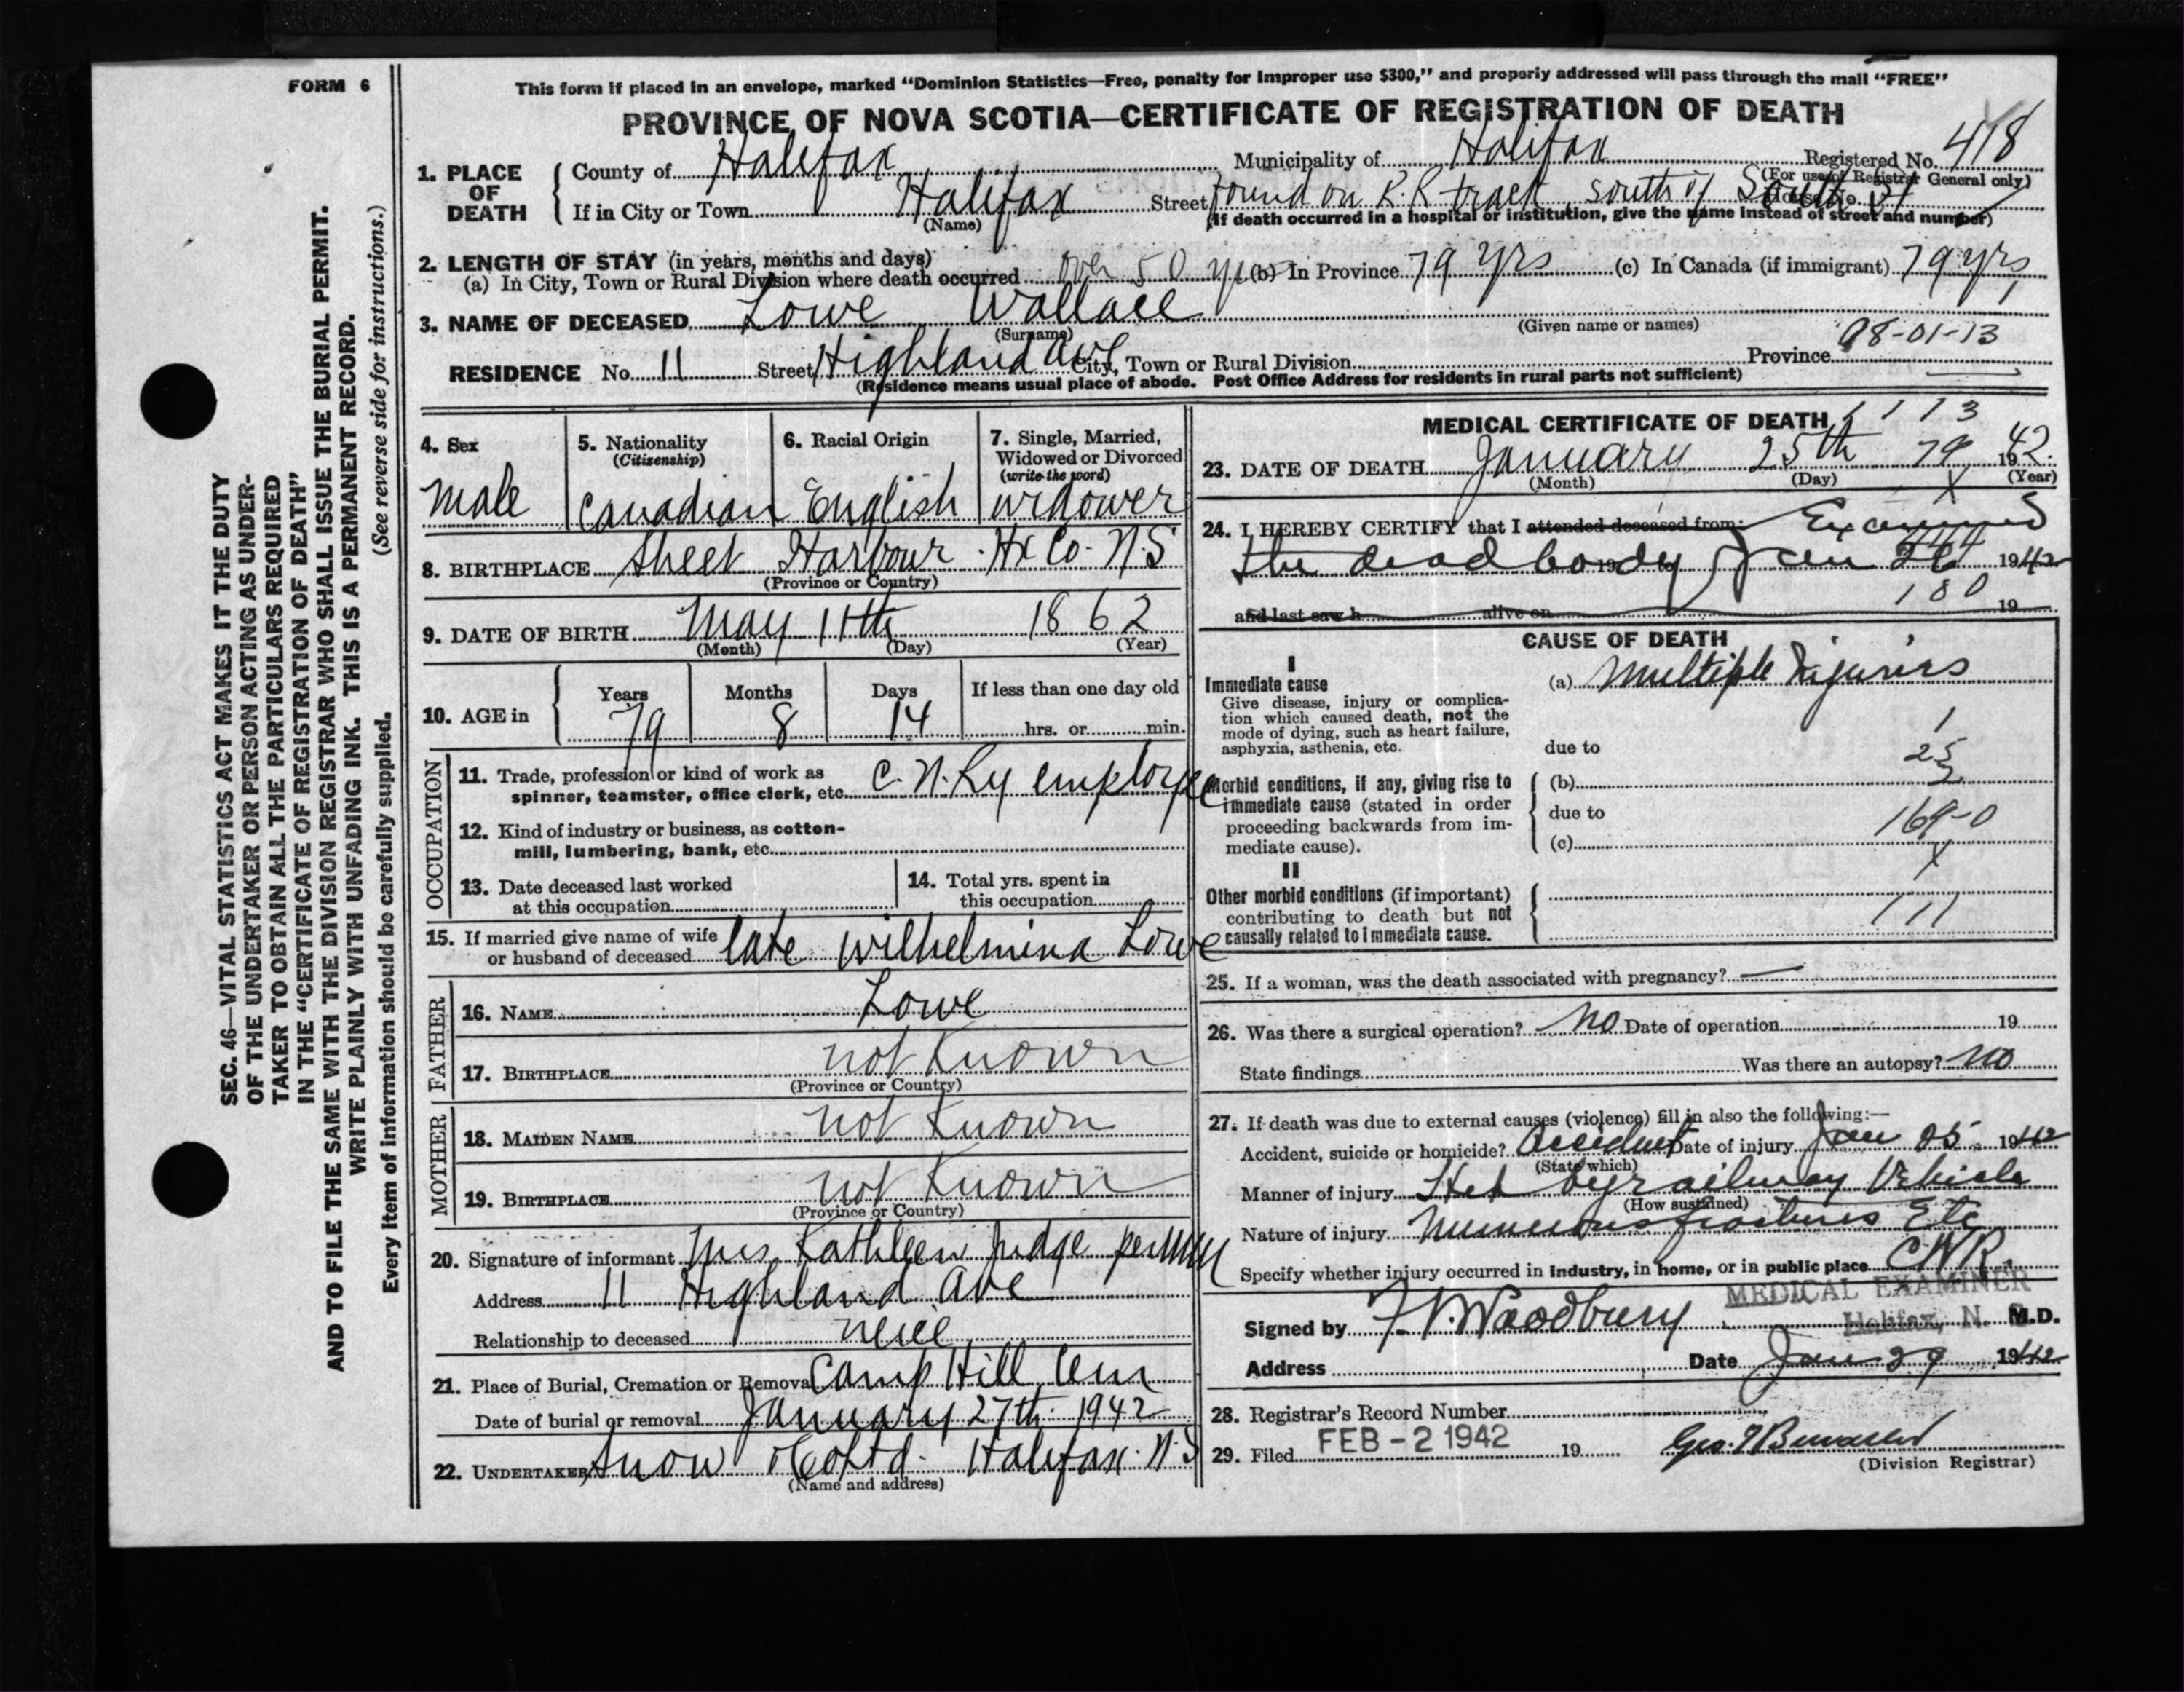 FORM 6
This form if placed in an envelope, marked "Dominion Statistics—Free, penalty for improper use $300," and properly addressed will pass through the mail "FREE"
PROVINCE OF NOVA SCOTIA—CERTIFICATE OF REGISTRATION OF DEATH
SEC. 46—VITAL STATISTICS ACT MAKES IT THE DUTY
OF THE UNDERTAKER OR PERSON ACTING AS UNDER-
TAKER TO OBTAIN ALL THE PARTICULARS REQUIRED
IN THE "CERTIFICATE OF REGISTRATION OF DEATH"
AND TO FILE THE SAME WITH THE DIVISION REGISTRAR WHO SHALL ISSUE THE BURIAL PERMIT.
WRITE PLAINLY WITH UNFADING INK. THIS IS A PERMANENT RECORD.
(See reverse side for instructions.)
Every item of information should be carefully supplied.
1. PLACE OF DEATH
County of Halifax Municipality of Halifax Registered No. 418
(For use of Registrar General only)
If in City or Town Halifax Street found on R.R track, south of South St House No.
(Name) (If death occurred in a hospital or institution, give the name instead of street and number)
2. LENGTH OF STAY (in years, months and days)
(a) In City, Town or Rural Division where death occurred over 50 yrs (b) In Province 79 yrs (c) In Canada (if immigrant) 79 yrs
3. NAME OF DECEASED Lowe Wallace
(Surname) (Given name or names)
98-01-13
RESIDENCE No. 11 Street Highland Ave City, Town or Rural Division Province
(Residence means usual place of abode. Post Office Address for residents in rural parts not sufficient)
4. Sex
male
5. Nationality
(Citizenship)
Canadian
6. Racial Origin
English
7. Single, Married,
Widowed or Divorced
(write the word)
widower
8. BIRTHPLACE Sheet Harbour Hx Co. N.S
(Province or Country)
9. DATE OF BIRTH May 11th 1862
(Month) (Day) (Year)
10. AGE in
Years Months Days If less than one day old
79 8 14 hrs. or min.
OCCUPATION
11. Trade, profession or kind of work as
spinner, teamster, office clerk, etc. C.N.Ry employee
12. Kind of industry or business, as cotton-
mill, lumbering, bank, etc.
13. Date deceased last worked
at this occupation
14. Total yrs. spent in
this occupation
15. If married give name of wife
or husband of deceased late Wilhelmina Lowe
FATHER
16. NAME Lowe
17. BIRTHPLACE not Known
(Province or Country)
MOTHER
18. MAIDEN NAME not Known
19. BIRTHPLACE not Known
(Province or Country)
20. Signature of informant Mrs Kathleen Judge
Address 11 Highland Ave
Relationship to deceased neice
21. Place of Burial, Cremation or Removal Camp Hill Cem
Date of burial or removal January 27th 1942
22. UNDERTAKER Snow & Co Ltd. Halifax N.S
(Name and address)
MEDICAL CERTIFICATE OF DEATH
1 1 1 3
23. DATE OF DEATH January 25th 79 1942.
(Month) (Day) (Year)
X
24. I HEREBY CERTIFY that I attended deceased from: Examined
444
the dead body 19 to Jan 26 1942
180
and last saw h alive on 19
CAUSE OF DEATH
I
Immediate cause
Give disease, injury or complica-
tion which caused death, not the
mode of dying, such as heart failure,
asphyxia, asthenia, etc.
(a) Multiple Injuries
1
due to
25
Morbid conditions, if any, giving rise to
immediate cause (stated in order
proceeding backwards from im-
mediate cause).
(b)
due to
169-0
(c)
X
II
Other morbid conditions (if important)
contributing to death but not
causally related to immediate cause.
111
25. If a woman, was the death associated with pregnancy? —
26. Was there a surgical operation? No Date of operation 19
State findings Was there an autopsy? No
27. If death was due to external causes (violence) fill in also the following:—
Accident, suicide or homicide? Accident Date of injury Jan 25 1942
(State which)
Manner of injury Hit by railway Vehicle
(How sustained)
Nature of injury Numerous fractures Etc
Specify whether injury occurred in industry, in home, or in public place C.N.R.
MEDICAL EXAMINER
Halifax, N.
Signed by F. V. Woodbury M.D.
Address Date Jan 29 1942
28. Registrar's Record Number
29. Filed FEB - 2 1942 19
(Division Registrar)